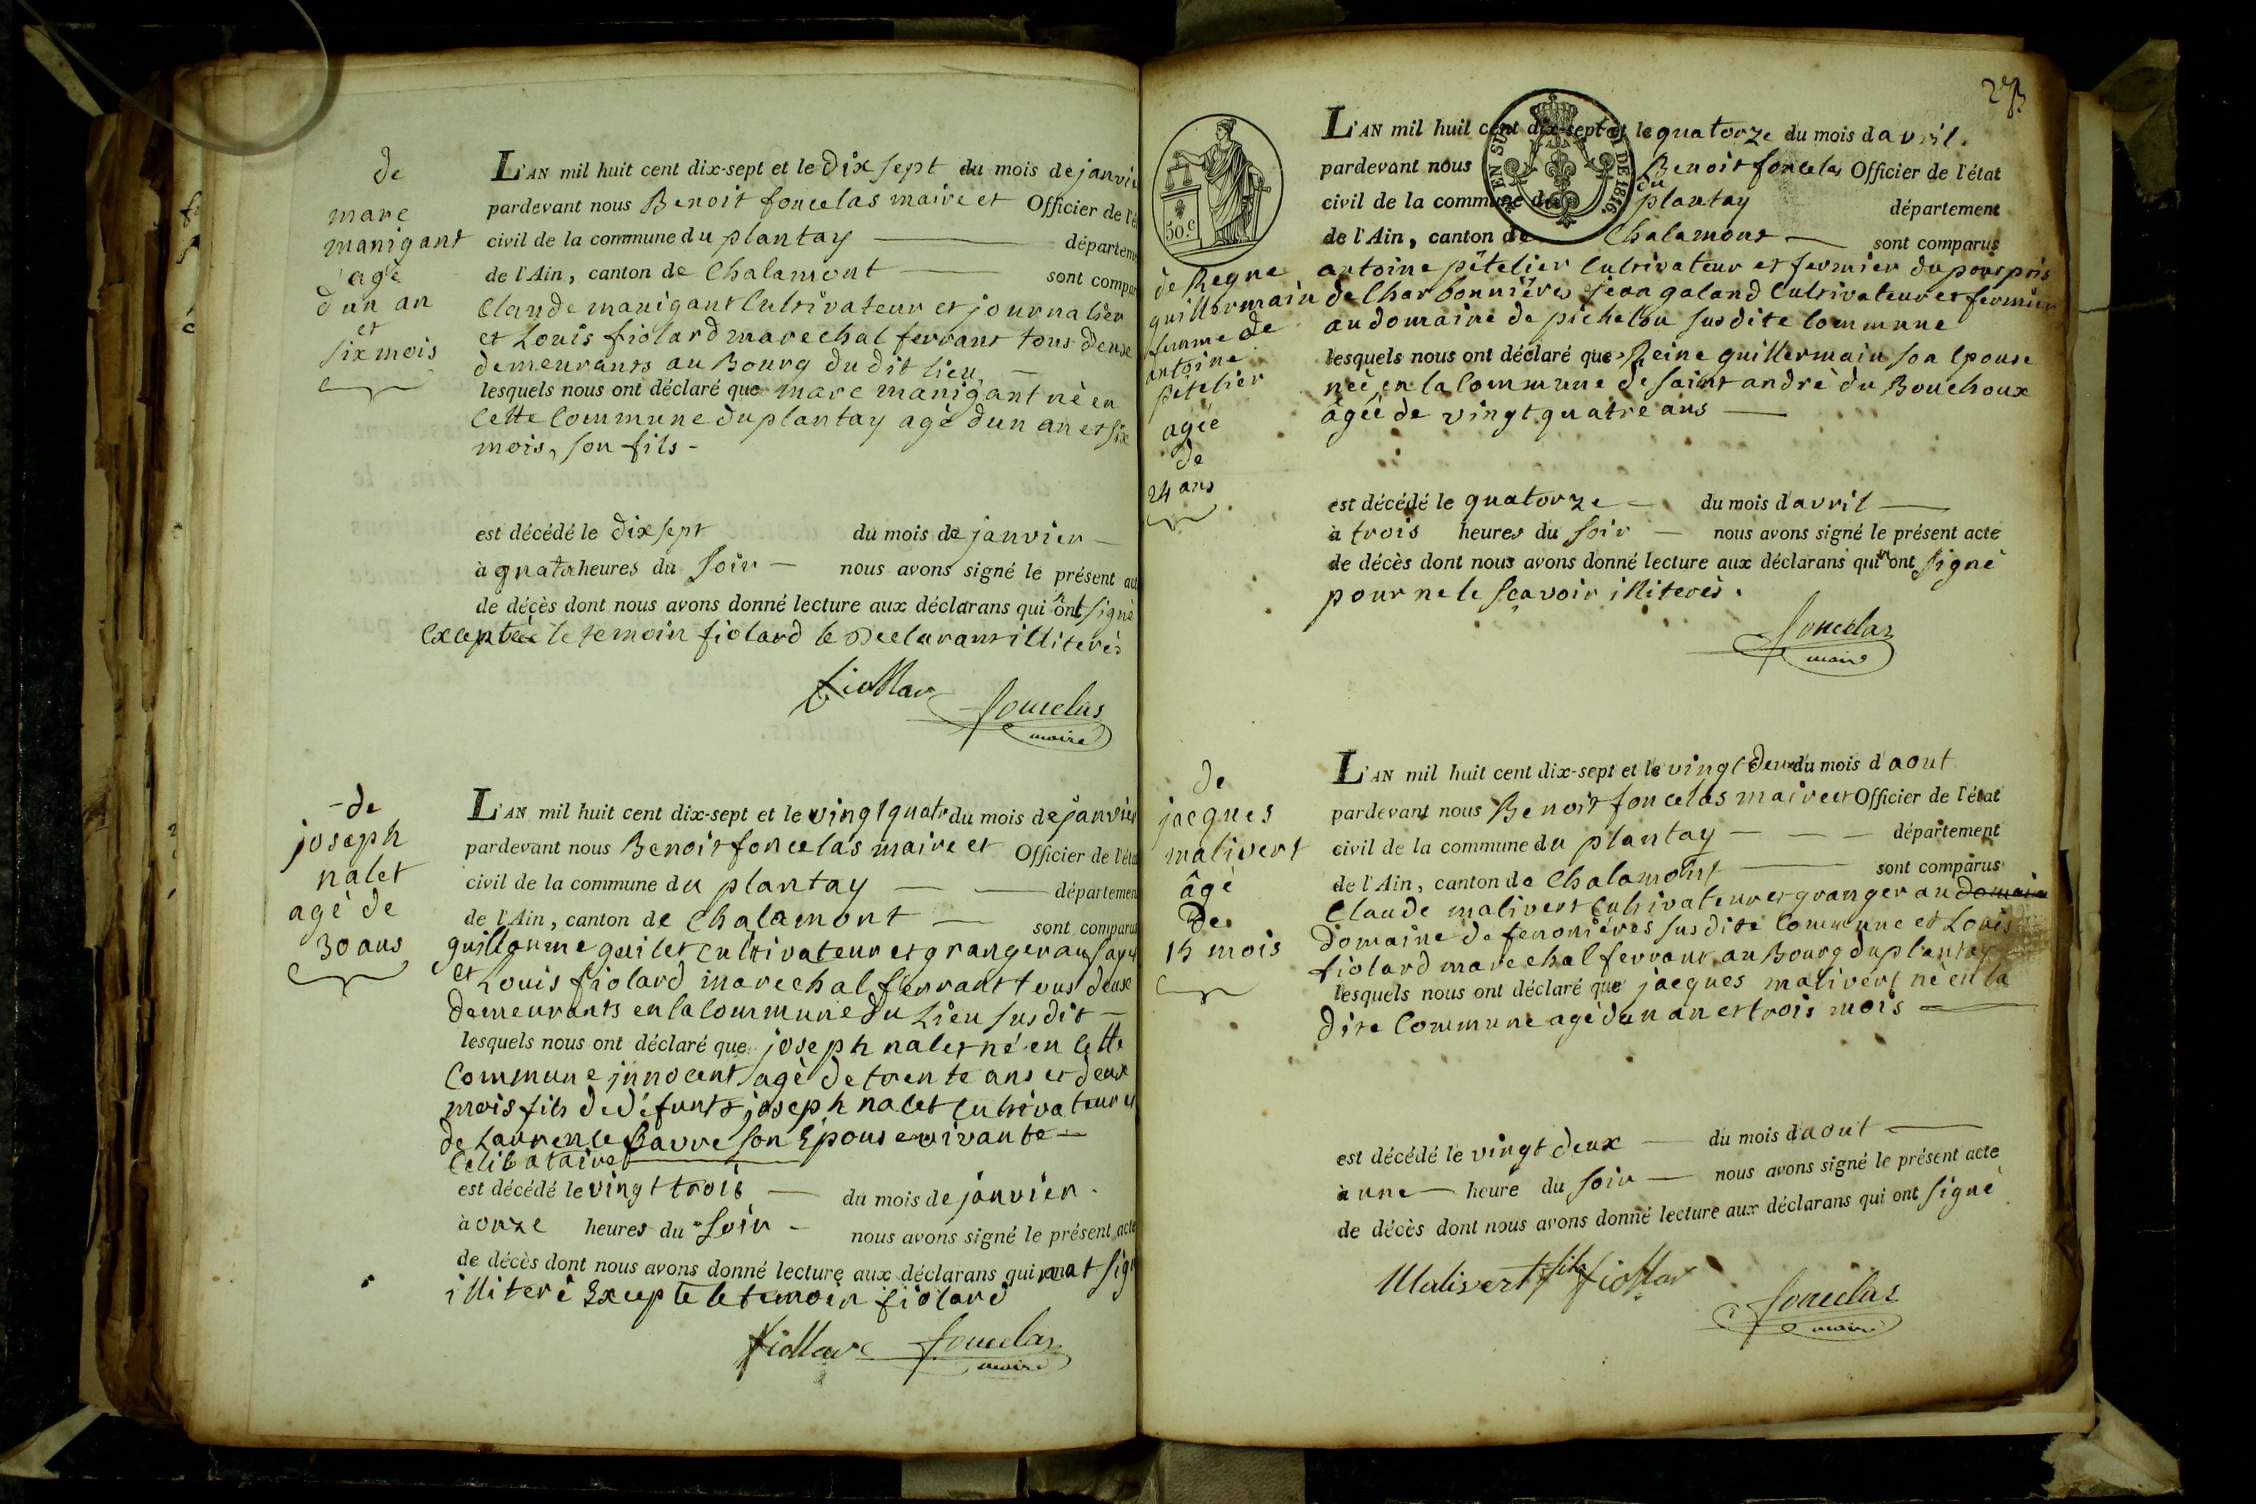 de
marc
manigant
agè
dun an
et
six mois
L'AN mil huit cent dix-sept et le dix sept du mois de janvie
pardevant nous Benoit foncelas maire et Officier de l'é
civil de la commune du plantay départeme
de l'Ain, canton de Chalamont sont compar
Claude manigant Cultivateur et journalier
et Louis fiolard marechal ferrant tous deux
demeurants au Bourg du dit lieu
lesquels nous ont déclaré que marc manigant nè en
Cette Commune du plantay agè dun an et six
mois, son fils -
est décédé le dix sept du mois de janvier
à quatre heures du soir nous avons signé le présent act
de décès dont nous avons donné lecture aux déclarans qui ont signè
Excepteè le temoin fiolard le declarant illiterès
fiollar foncelas
maire
- de
joseph
nalet
agè de
30 ans
L'AN mil huit cent dix-sept et le vingt quatr du mois de janvier
pardevant nous Benoit foncelas maire et Officier de l'éta
civil de la commune du plantay départemen
de l'Ain, canton de Chalamont sont comparu
guillaume guilet cultivateur et granger au
et Louis fiolard marechal ferrant tous deux
demeurants en la Commune du Lieu susdit
lesquels nous ont déclaré que joseph nalet né en Cette
Commune jnnocent agè de trente ans et deux
mois fils de défunts joseph nalet Cultivateur et
de Laurence favre son Epouse vivante
Celibataire
est décédé le vingt trois du mois de janvier.
à onze heures du soir nous avons signé le présent acte
de décès dont nous avons donné lecture aux déclarans qui ont sign
illiterè Excepte le temoin fiolard
fiollar foncelas
maire
273
L'AN mil huit cent dix-sept et le quatorze du mois d avril.
pardevant nous Benoit foncelas Officier de l'état
civil de la commune du du plantay département
de l'Ain, canton de Chalamont sont comparus
EN SUS
DE 1816.
50.c
de Regne
guillermain
femme de
antoine
pételier
agée
de
24 ans
antoine pételier Cultivateur et fermier du pourpris
de Charbonniéres jean galand Cultivateur et fermier
au domaine de pichelou susdite Commune
lesquels nous ont déclaré que Reine guillermain son Epouse
neè en la Commune de saint andrè du Bouchoux
âgéé de vingt quatre ans
est décédé le quatorze du mois d avril
à trois heures du soir nous avons signé le présent acte
de décès dont nous avons donné lecture aux déclarans qui n'ont signè
pour ne le sçavoir illiterès.
foncelas
maire
de
jacques
malivert
âgè
de
15 mois
L'AN mil huit cent dix-sept et le vingt deux du mois d aout
pardevant nous Benoit foncelas maire et Officier de l'état
civil de la commune du plantay département
de l'Ain, canton de Chalamont sont comparus
Claude malivert Cultivateur et granger au domaine
Domaine de fenoniéres susdite Commune et Louis
fiolard marechal ferrant au Bourg du plantay
lesquels nous ont déclaré que jacques malivert nè en la
dite Commune agè dun an et trois mois
est décédé le vingt deux du mois d aout
à une heure du soir nous avons signé le présent acte
de décès dont nous avons donné lecture aux déclarans qui ont signè
Malivert fils fiollar
foncelas
maire